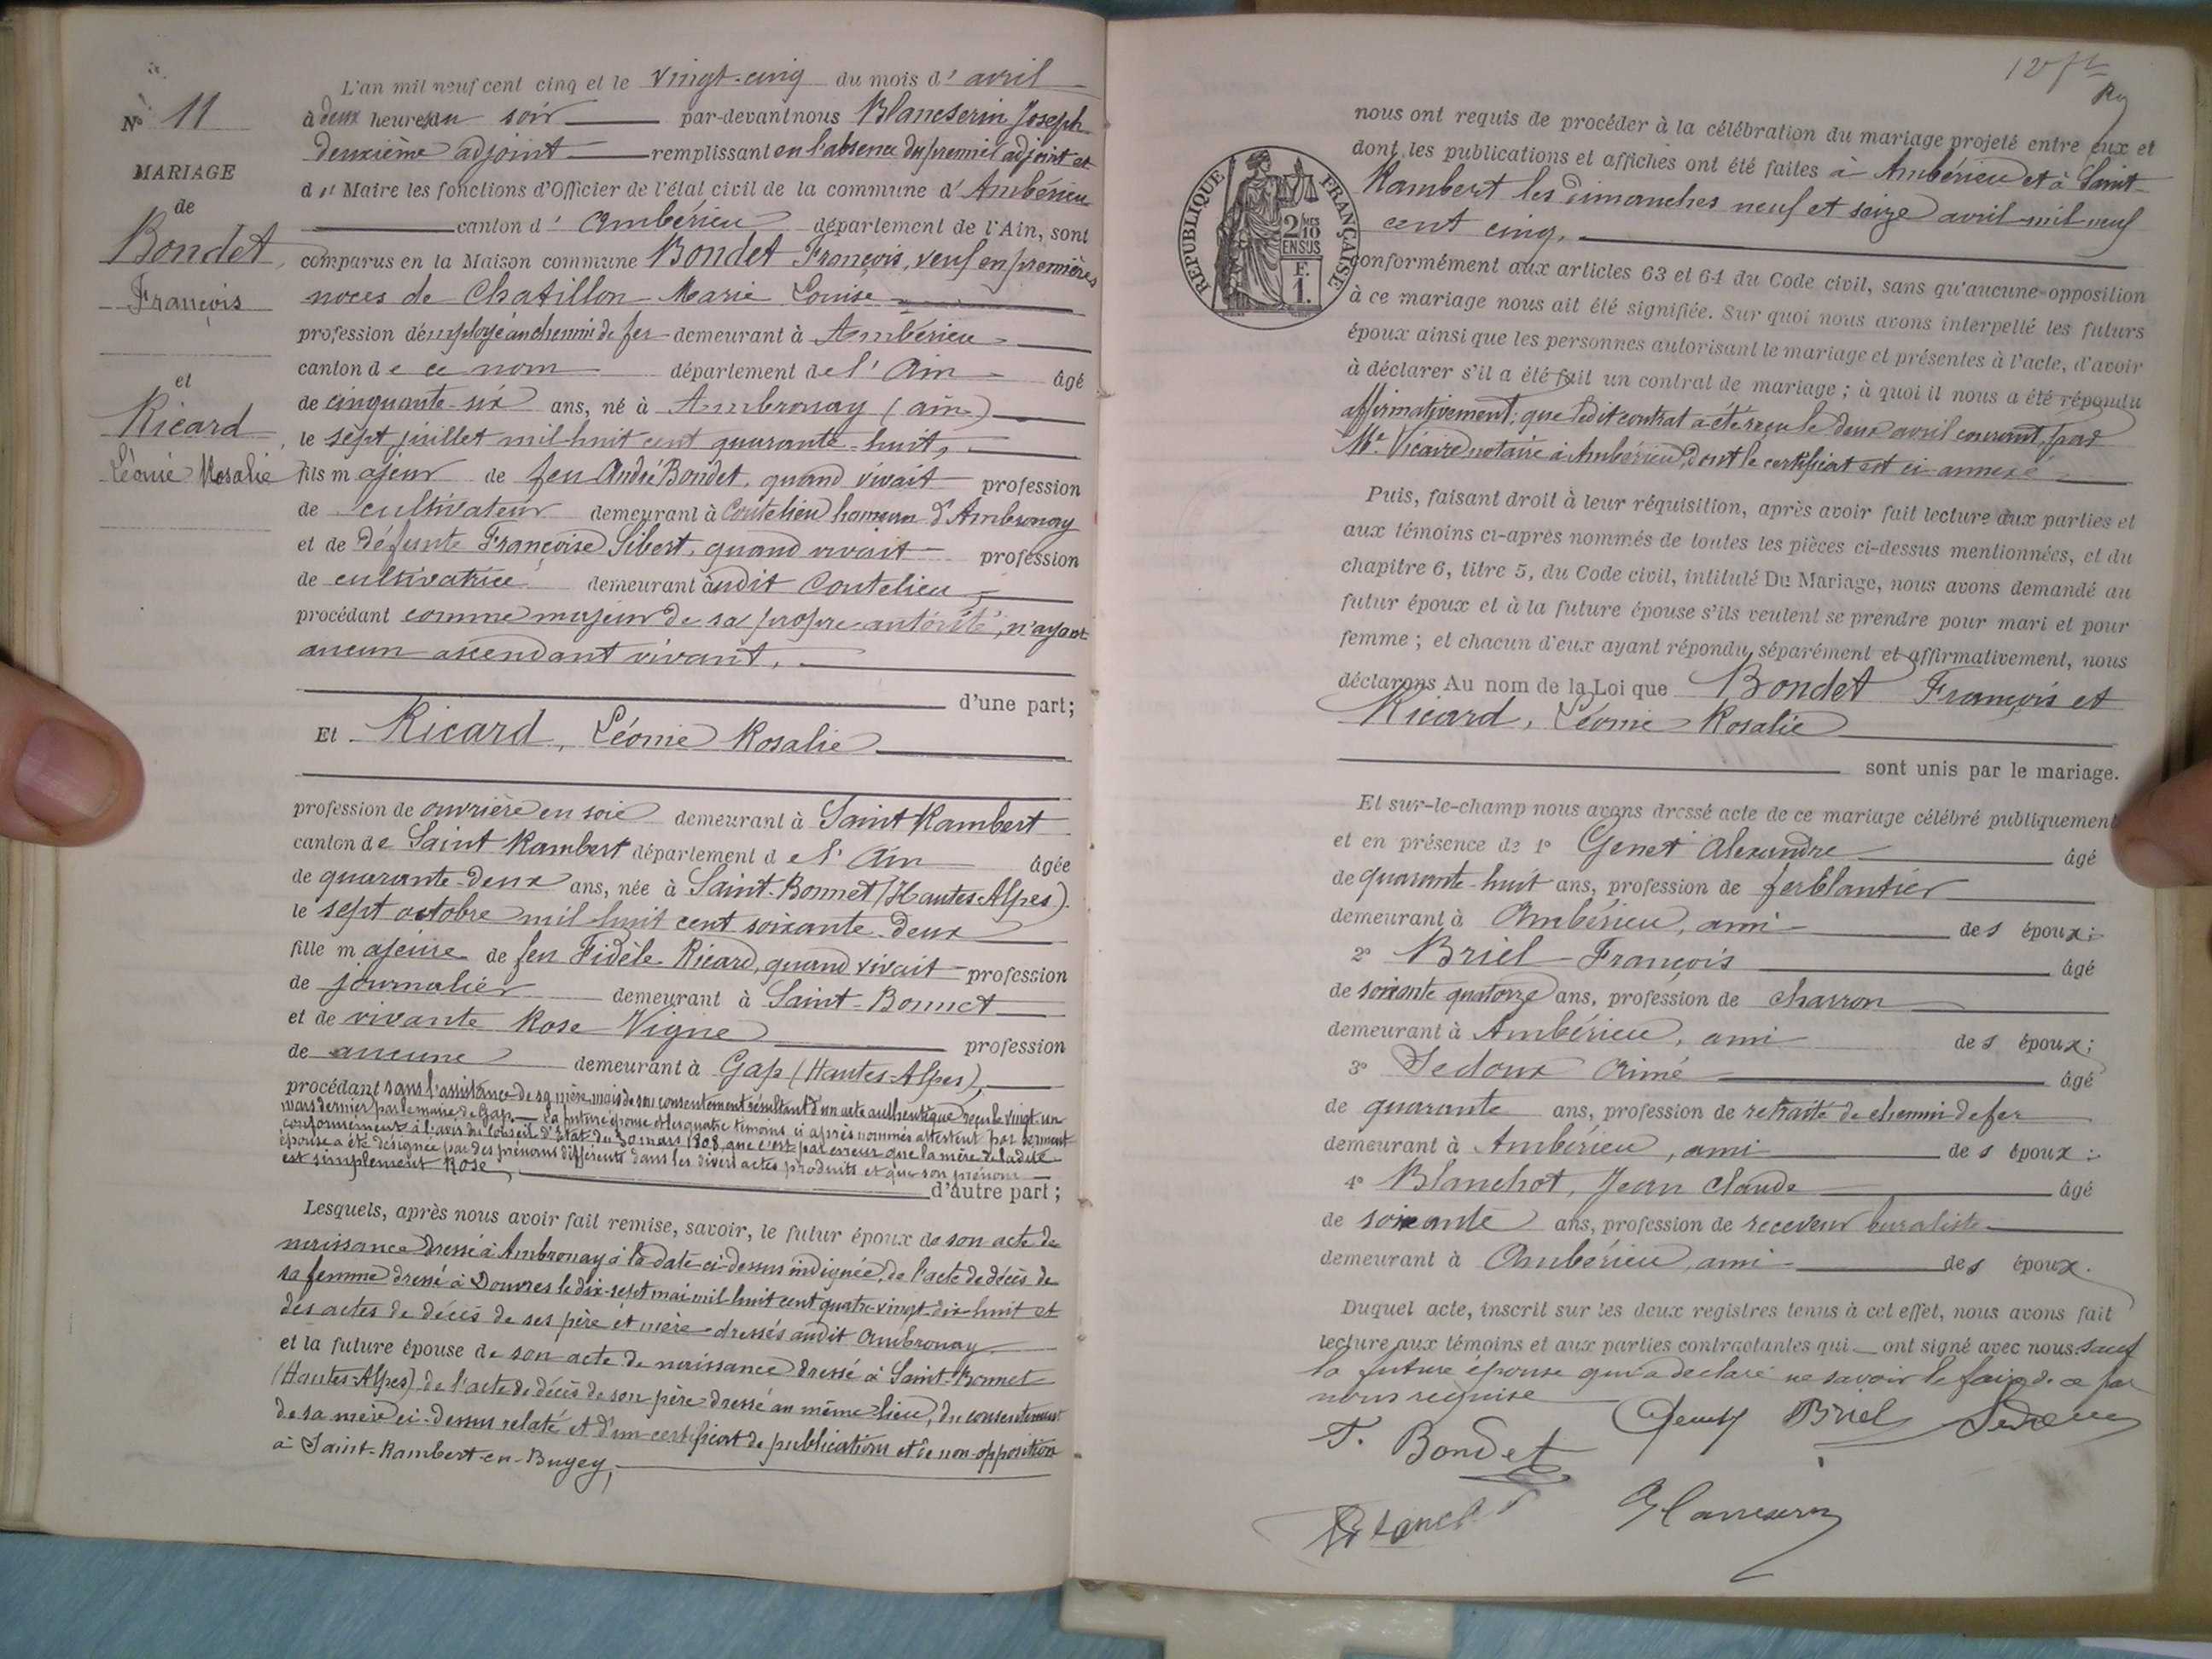 Nº 11
MARIAGE
de
Bondet
François
et
Ricard
Léonie Rosalie
L'an mil neuf cent cinq et le vingt-cinq du mois d'avril
à deux heures du soir par-devant nous Blancserin Joseph
deuxième adjoint remplissant en l'absence du premier adjoint et
du Maire les fonctions d'Officier de l'état civil de la commune d'Ambérieu
canton d'Ambérieu département de l'Ain, sont
comparus en la Maison commune Bondet François, veuf en premières
noces de Chatillon Marie Louise
profession d'employé au chemin de fer demeurant à Ambérieu
canton de ce nom département de l'Ain âgé
de cinquante-six ans, né à Ambronay (ain)
le sept juillet mil huit cent quarante-huit,
fils majeur de feu André Bondet, quand vivait profession
de cultivateur demeurant à Coutelieu hameau d'Ambronay
et de défunte Françoise Sibert, quand vivait profession
de cultivatrice demeurant audit Coutelieu,
procédant comme majeur de sa propre autorité, n'ayant
aucun ascendant vivant,
d'une part;
Et Ricard, Léonie Rosalie
profession de ouvrière en soie demeurant à Saint Rambert
canton de Saint Rambert département de l'Ain âgée
de quarante-deux ans, née à Saint-Bonnet (Hautes-Alpes).
le sept octobre mil huit cent soixante-deux
fille majeure de feu Fidèle Ricard, quand vivait profession
de journalier demeurant à Saint-Bonnet
et de vivante Rose Vigne profession
de aucune demeurant à Gap (Hautes-Alpes),
procédant sans l'assistance de sa mère, mais de son consentement résultant d'un acte authentique reçu le vingt-un
mars dernier par le maire de Gap. La future épouse et les quatre témoins ci après nommés attestent par serment
conformément à l'avis du Conseil d'Etat du 30 mars 1808, que c'est par erreur que la mère de ladite
épouse a été désignée par des prénoms différents dans les divers actes produits et que son prénom
est simplement Rose,
d'autre part;
Lesquels, après nous avoir fait remise, savoir, le futur époux de son acte de
naissance dressé à Ambronay à la date ci-dessus indiquée, de l'acte de décès de
sa femme dressé à Douvres le dix-sept mai mil huit cent quatre-vingt-dix-huit et
des actes de décès de ses père et mère dressés audit Ambronay
et la future épouse de son acte de naissance dressé à Saint-Bonnet
(Hautes-Alpes) de l'acte de décès de son père dressé au même lieu, du consentement
de sa mère ci-dessus relaté et d'un certificat de publications et de non opposition
à Saint-Rambert-en-Bugey,
nous ont requis de procéder à la célébration du mariage projeté entre eux et
dont les publications et affiches ont été faites à Ambérieu et à Saint-
Rambert les dimanches neuf et seize avril mil neuf
cent cinq,
REPUBLIQUE FRANÇAISE
conformément aux articles 63 et 64 du Code civil, sans qu'aucune opposition
à ce mariage nous ait été signifiée. Sur quoi nous avons interpellé les futurs
époux ainsi que les personnes autorisant le mariage et présentes à l'acte, d'avoir
à déclarer s'il a été fait un contrat de mariage; à quoi il nous a été répondu
affirmativement: que ledit contrat a été reçu le deux avril courant, par
Me. Vicaire notaire à Ambérieu, dont le certificat est ci-annexé
Puis, faisant droit à leur réquisition, après avoir fait lecture aux parties et
aux témoins ci-après nommés de toutes les pièces ci-dessus mentionnées, et du
chapitre 6, titre 5, du Code civil, intitulé Du Mariage, nous avons demandé au
futur époux et à la future épouse s'ils veulent se prendre pour mari et pour
femme; et chacun d'eux ayant répondu séparément et affirmativement, nous
déclarons Au nom de la Loi que Bondet François et
Ricard, Léonie Rosalie
sont unis par le mariage.
Et sur-le-champ nous avons dressé acte de ce mariage célébré publiquement
et en présence de 1º Genet Alexandre âgé
de quarante-huit ans, profession de ferblantier
demeurant à Ambérieu, ami des époux;
2º Briel François âgé
de soixante quatorze ans, profession de charron
demeurant à Ambérieu, ami des époux;
3º Sedoux Aimé âgé
de quarante ans, profession de retraité de chemin de fer
demeurant à Ambérieu, ami des époux;
4º Blanchot, Jean Claude âgé
de soixante ans, profession de receveur buraliste
demeurant à Ambérieu, ami des époux.
Duquel acte, inscrit sur les deux registres tenus à cet effet, nous avons fait
lecture aux témoins et aux parties contractantes qui ont signé avec nous sauf
la future épouse qui a déclaré ne savoir le faire de ce par
nous requise
Genet Briel Sedoux
F. Bondet